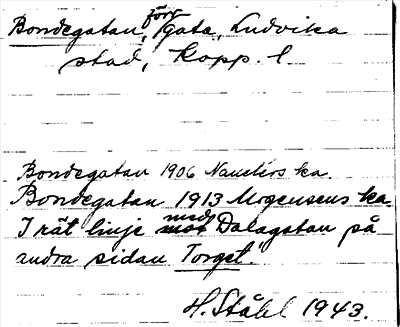 Bondegatan, förr gata, Ludvika
stad, Kopp. l.
Bondegatan 1906 Nauclérs ka
Bondegatan 1913 Mogensens ka
I rät linje med Dalagatan på
andra sidan Torget.
H. Ståhl 1943.